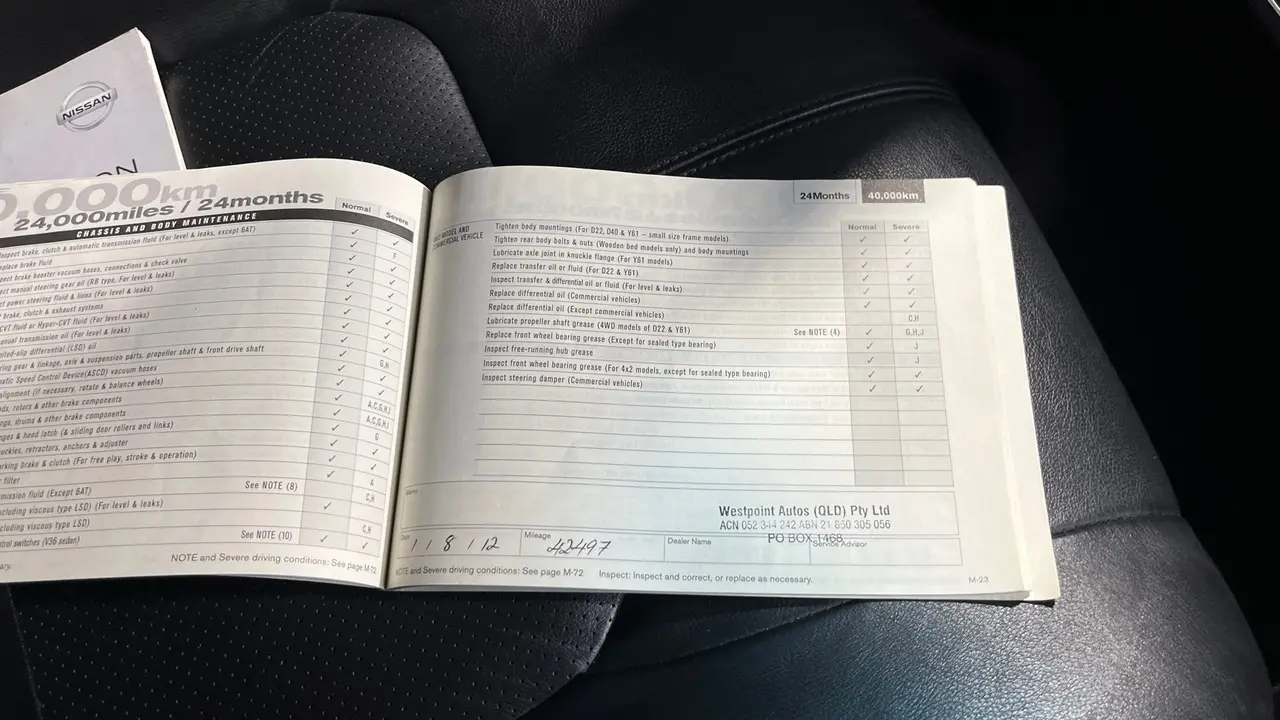 NISSAN
0,000km
24,000miles / 24months
CHASSIS AND BODY MAINTENANCE
Normal Severe
nspect brake, clutch & automatic transmission fluid (For level & leaks, except 6AT) ✓ ✓
eplace brake fluid ✓
pect brake booster vacuum hoses, connections & check valve ✓ ✓
ect manual steering gear oil (RB type, For level & leaks) ✓ ✓
ct power steering fluid & lines (For level & leaks) ✓ ✓
brake, clutch & exhaust systems ✓ ✓
CVT fluid or Hyper-CVT fluid (For level & leaks) ✓ ✓
anual transmission oil (For level & leaks) ✓ ✓
ited-slip differential (LSD) oil ✓ ✓
ring gear & linkage, axle & suspension parts, propeller shaft & front drive shaft G,H
atic Speed Control Device(ASCD) vacuum hoses ✓ ✓
alignment (if necessary, rotate & balance wheels) ✓ ✓
ds, rotors & other brake components A,C,G,H,I
ngs, drums & other brake components A,C,G,H,I
nges & hood latch (& sliding door rollers and links) G
uckles, retractors, anchors & adjuster ✓ ✓
arking brake & clutch (For free play, stroke & operation) ✓ ✓
r filter A
mission fluid (Except 6AT) See NOTE (8) C,H
ncluding viscous type LSD) (For level & leaks) ✓
cluding viscous type LSD) C,H
ntrol switches (V36 sedan) See NOTE (10) ✓ ✓
ary. NOTE and Severe driving conditions: See page M-72
24Months 40,000km
Normal Severe
MODEL AND
COMMERCIAL VEHICLE
Tighten body mountings (For D22, D40 & Y61 – small size frame models) ✓ ✓
Tighten rear body bolts & nuts (Wooden bed models only) and body mountings ✓ ✓
Lubricate axle joint in knuckle flange (For Y61 models) ✓ ✓
Replace transfer oil or fluid (For D22 & Y61) ✓ ✓
Inspect transfer & differential oil or fluid (For level & leaks) ✓ ✓
Replace differential oil (Commercial vehicles) ✓ ✓
Replace differential oil (Except commercial vehicles) C,H
Lubricate propeller shaft grease (4WD models of D22 & Y61) See NOTE (4) ✓ G,H,J
Replace front wheel bearing grease (Except for sealed type bearing) ✓ J
Inspect free-running hub grease ✓ J
Inspect front wheel bearing grease (For 4x2 models, except for sealed type bearing) ✓ ✓
Inspect steering damper (Commercial vehicles) ✓ ✓
Westpoint Autos (QLD) Pty Ltd
ACN 052 344 242 ABN 21 850 305 056
PO BOX 1468
1 / 8 / 12 Mileage 42497 Dealer Name Service Advisor
NOTE and Severe driving conditions: See page M-72 Inspect: Inspect and correct, or replace as necessary.
M-23